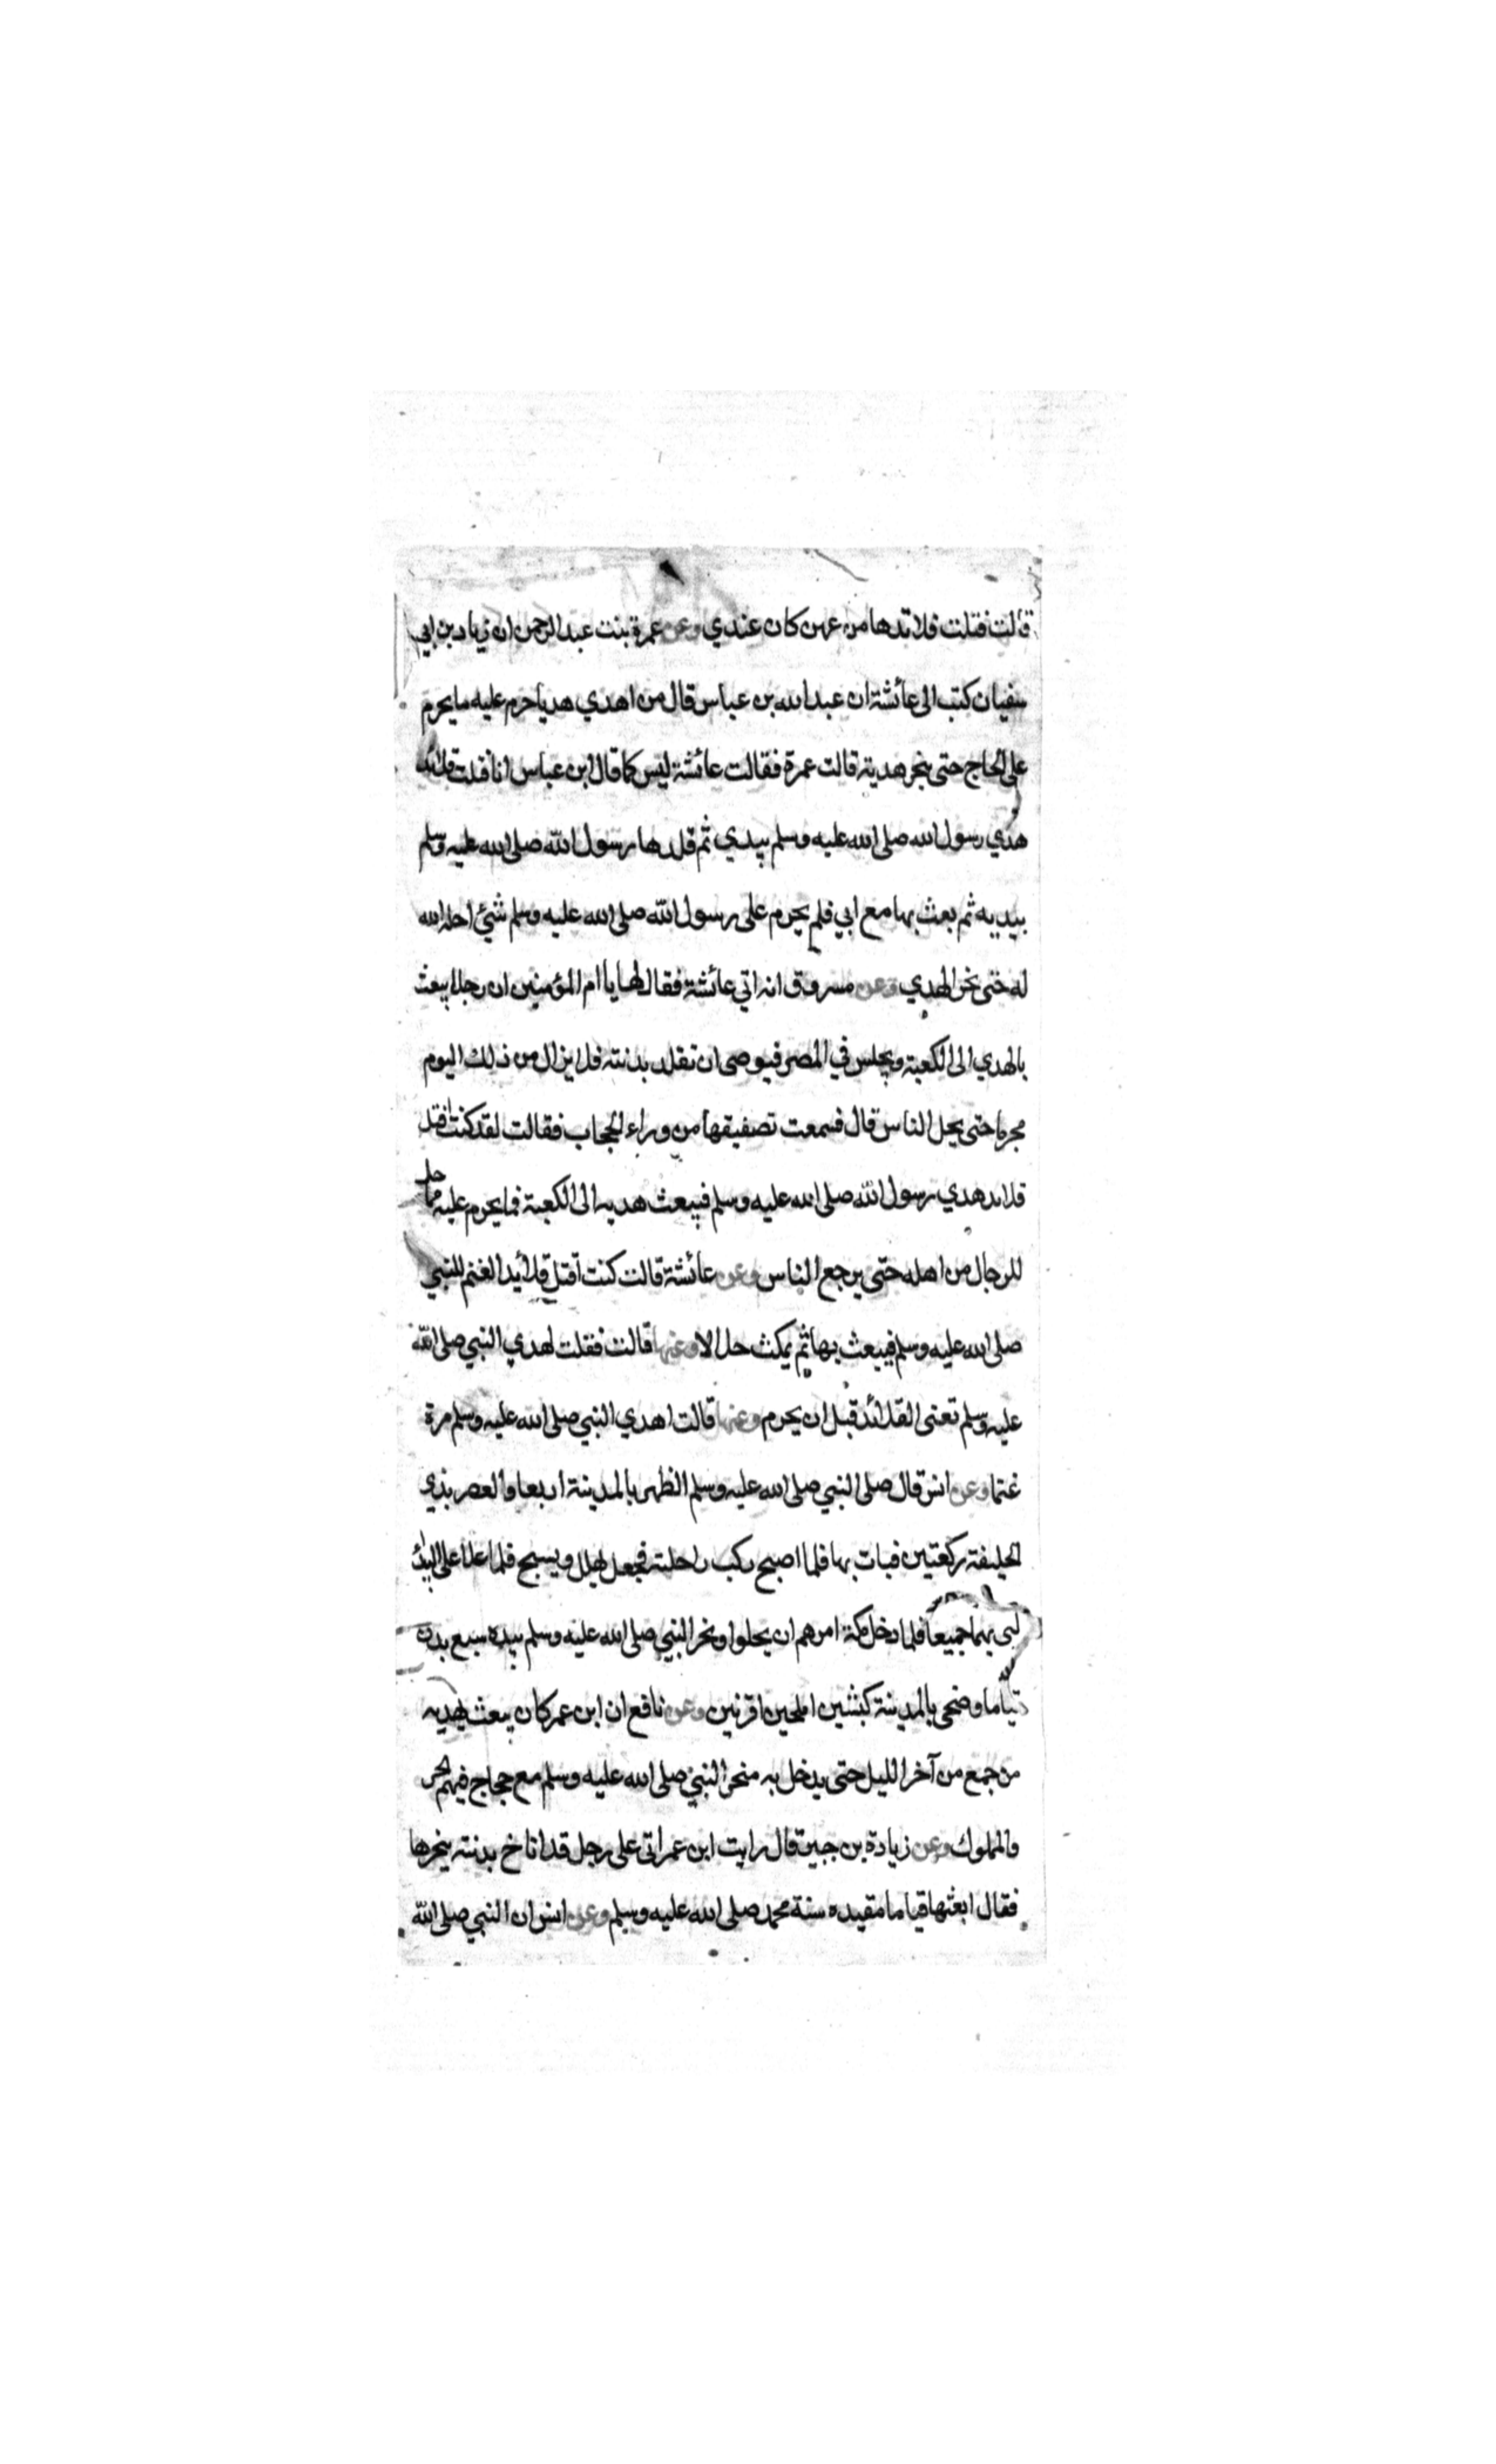 قالت فتلت قلائدها من عهن كان عندي وعن عمرة بنت عبد الرحمن ان زياد بن ابي
سفيان كتب الى عائشة ان عبد الله بن عباس قال من اهدي هديا حرم عليه ما يحرم
على الحاج حتى ينحر هديه قالت عمرة فقالت عائشة ليس كما قال ابن عباس انا فتلت قلائد
هدي رسول الله صلى الله عليه وسلم بيدي ثم قلدها رسول الله صلى الله عليه وسلم
بيديه ثم بعث بها مع ابي فلم يحرم على رسول الله صلى الله عليه وسلم شئ احله الله
له حتى نحر الهدي وعن مسروق انه اتي عائشة فقال لها يا ام المؤمنين ان رجلا يبعث
بالهدي الى الكعبة ويجلس في المصر فيوصى ان تقلد بدنته فلا يزال من ذلك اليوم
محرما حتى يحل الناس قال فسمعت تصفيقها من وراء الحجاب فقالت لقد كنت افتل
قلائد هدي رسول الله صلى الله عليه وسلم فيبعث هديه الى الكعبة فما يحرم عليه مما حل
للرجال من اهله حتى يرجع الناس وعن عائشة قالت كنت افتل قلائد الغنم للنبي
صلى الله عليه وسلم فيبعث بها ثم يمكث حلالا وعنها قالت فتلت لهدي النبي صلى الله
عليه وسلم تعنى القلائد قبل ان يحرم وعنها قالت اهدي النبي صلى الله عليه وسلم مرة
غنما وعن انس قال صلى النبي صلى الله عليه وسلم الظهر بالمدينة اربعا والعصر بذي
الحليفة ركعتين فبات بها فلما اصبح ركب راحلته فجعل يهلل ويسبح فلما علا على البيداء
لبى بهما جميعا فلما دخل مكة امرهم ان يحلوا ونحر النبي صلى الله عليه وسلم بيده سبع بدن
قياما وضحى بالمدينة كبشين املحين اقرنين وعن نافع ان ابن عمر كان يبعث بهديه
من جمع من آخر الليل حتى يدخل به منحر النبي صلى الله عليه وسلم مع حجاج فيهم الحر
والمملوك وعن زيادة بن جبير قال رايت ابن عمر اتى على رجل قد اناخ بدنته ينحرها
فقال ابعثها قياما مقيده سنة محمد صلى الله عليه وسلم وعن انس ان النبي صلى الله